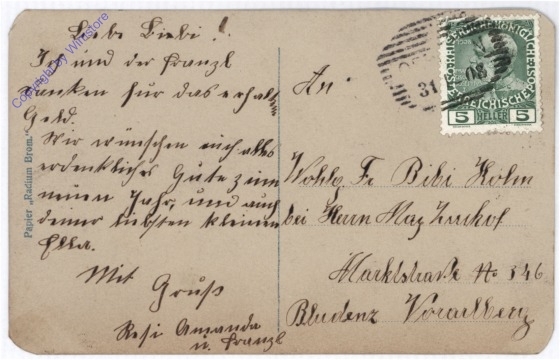 Liebe Biebi!
Ich und der Franzl
danken für das erhalt
Geld.
Wir wünschen euch alles
erdenkliches Gute zum
neuen Jahr, und auch
deiner liebsten kleinen
Ella.
Mit
Gruß
Resi Amanda
u. Franzl
Papier „Radium Brom."
Copyright by Winistore
31 08
5 HELLER 5
An
Wohlg. Fr. Bibi Kolm
bei Herrn Max
Marktstraße No 346
Bludenz Vorarlberg